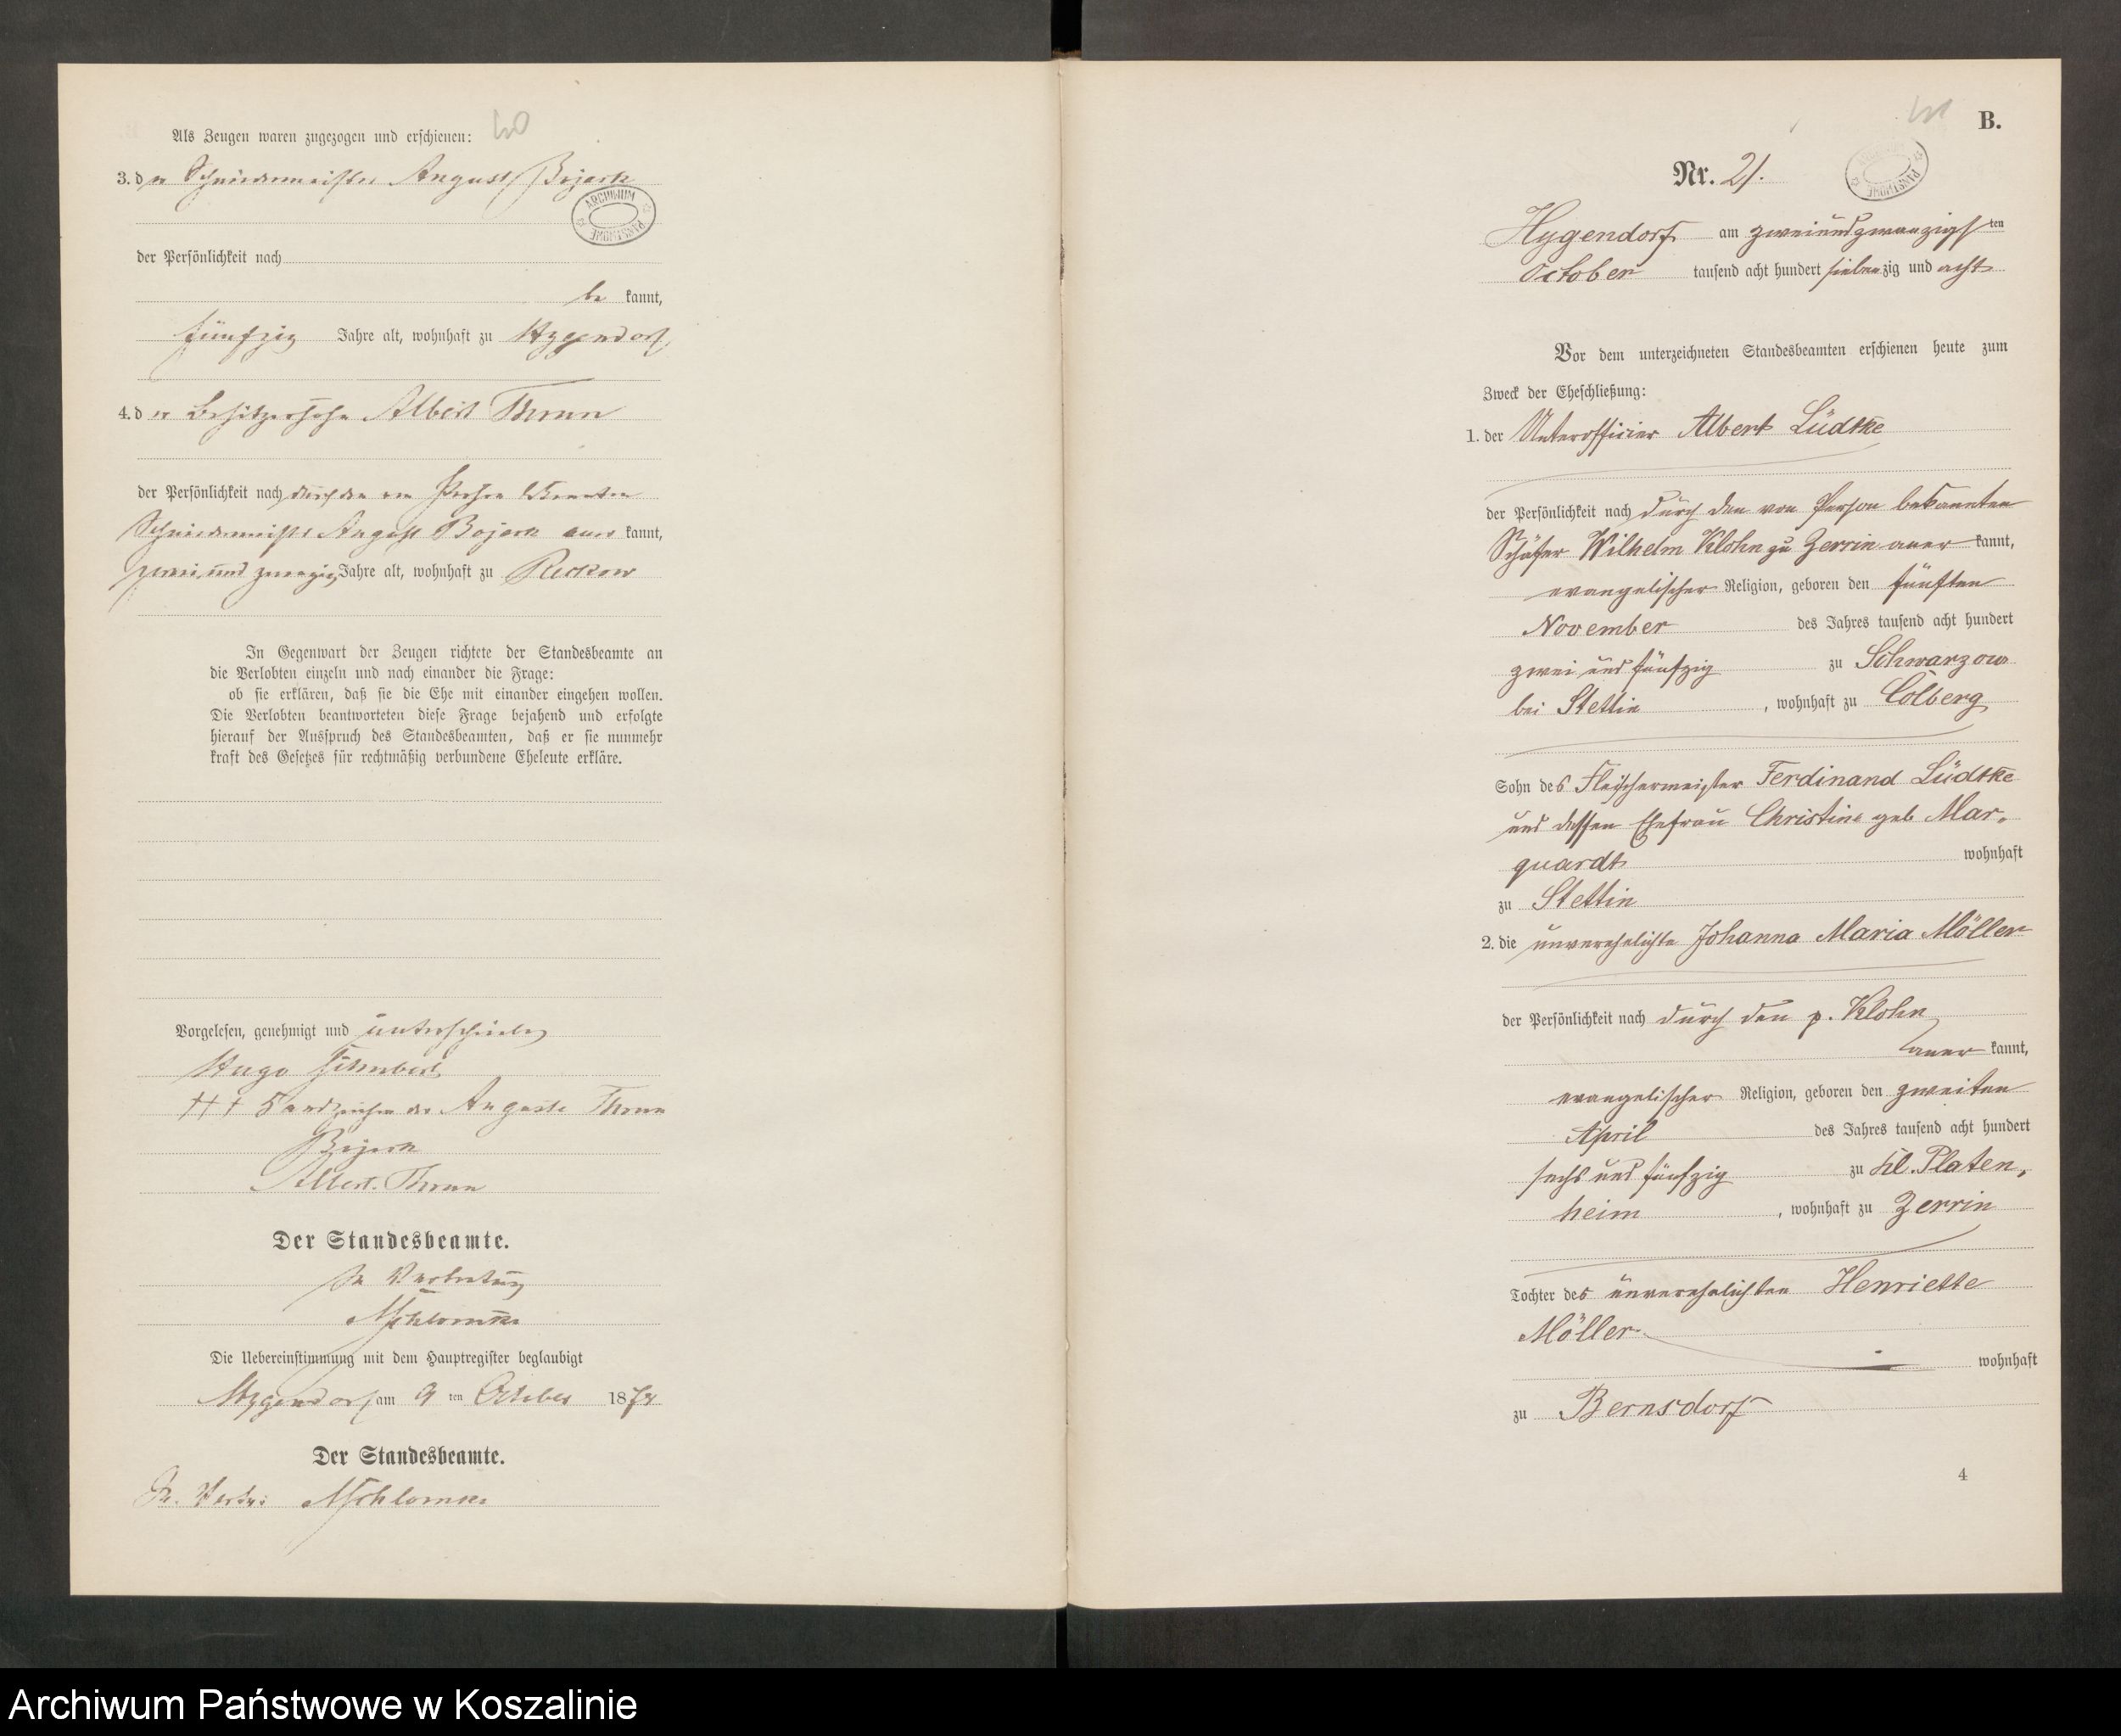 40
Als Zeugen waren zugezogen und erschienen:
3. der Schneidermeister August Bojack
ARCHIWUM PAŃSTWOWE
der Persönlichkeit nach
be kannt,
fünfzig Jahre alt, wohnhaft zu Hygendorf
4. der Besitzersohn Albert Thrun
der Persönlichkeit nach durch den von Person bekannten
Schneidermeister August Bojack aner kannt,
zwei und zwanzig Jahre alt, wohnhaft zu Reckow
In Gegenwart der Zeugen richtete der Standesbeamte an
die Verlobten einzeln und nach einander die Frage:
ob sie erklären, daß sie die Ehe mit einander eingehen wollen.
Die Verlobten beantworteten diese Frage bejahend und erfolgte
hierauf der Ausspruch des Standesbeamten, daß er sie nunmehr
kraft des Gesetzes für rechtmäßig verbundene Eheleute erkläre.
Vorgelesen, genehmigt und unterschrieben
Hugo
††† Handzeichen der Auguste Thrun
Bojack
Albert Thrun
Der Standesbeamte.
In Vertretung
Die Uebereinstimmung mit dem Hauptregister beglaubigt
Hygendorf am 9 ten October 1878
Der Standesbeamte.
In Vertr:
41
B.
Nr. 21.
ARCHIWUM PAŃSTWOWE
Hygendorf am zweiundzwanzigsten
October tausend acht hundert siebenzig und acht
Vor dem unterzeichneten Standesbeamten erschienen heute zum
Zweck der Eheschließung:
1. der Unterofficier Albert Lüdtke
der Persönlichkeit nach durch den von Person bekannten
Schäfer Wilhelm Klohn zu Zerrin aner kannt,
evangelischer Religion, geboren den fünften
November des Jahres tausend acht hundert
zwei und fünfzig zu Schwarzow
bei Stettin, wohnhaft zu Colberg
Sohn des Fleischermeister Ferdinand Lüdtke
und dessen Ehefrau Christine geb Mar-
quardt wohnhaft
zu Stettin
2. die unverehelichte Johanna Maria Möller
der Persönlichkeit nach durch den p. Klohn
aner kannt,
evangelischer Religion, geboren den zweiten
April des Jahres tausend acht hundert
sechs und fünfzig zu Kl. Platen-
heim, wohnhaft zu Zerrin
Tochter des unverehelichten Henriette
Möller
wohnhaft
zu Bernsdorf
4
Archiwum Państwowe w Koszalinie